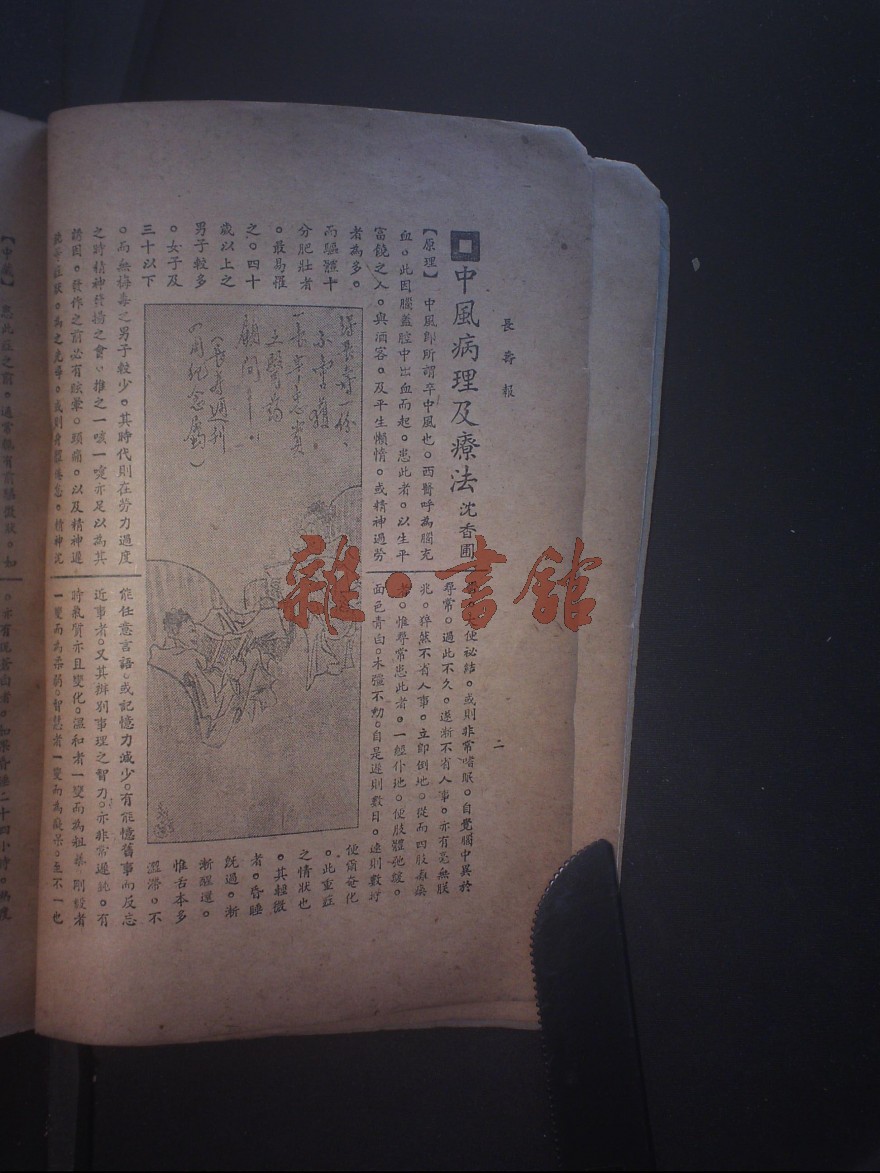 長壽報
二
中風病理及療法 沈香圃
【原理】 中風即所謂卒中風也。西醫呼為腦充
血。此因腦蓋腔中出血而起。患此者。以生平
富饒之人。與酒客。及平生懶惰。或精神過勞
者為多。
而軀體十
分肥壯者
。最易罹
之。四十
歲以上之
男子較多
。女子及
三十以下
。而無梅毒之男子較少。其時代則在勞力過度
之時精神發揚之會。推之一咳一嚏亦足以為其
誘因。發作之前必有眩暈。頭痛。以及精神過
便祕結。或則非常嗜眠。自覺腦中異於
尋常。過此不久。遂漸不省人事。亦有毫無朕
兆。猝然不省人事。立即倒地。從而四肢癱瘓
者。惟尋常患此者。一經仆地。便肢體弛緩。
面色青白。木彊不動。自是遲則數日。速則數時
便爾奄化
。此重症
之情狀也
。其輕微
者。昏睡
既過。漸
漸醒還。
惟舌本多
澀滯。不
能任意言語。或記憶力減少。有能憶舊事而反忘
近事者。又其辦別事理之智力。亦非常遲鈍。有
時氣質亦且變化。溫和者一變而為粗暴。剛毅者
一變而為柔弱。智慧者一變而為癡呆。至不一也
之醫藥
顧問
(長壽週刊
一周紀念廣)
【中風】 患此症之前。通常偶有前驅徵狀。如
雜·書館